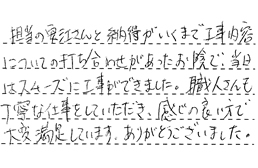 担当の東江さんと納得がいくまで工事内容
についての打ち合わせがあったお陰で、当日
はスムーズに工事ができました。職人さんも
丁寧な仕事をしていただき、感じの良い方で
大変満足しています。ありがとうございました。